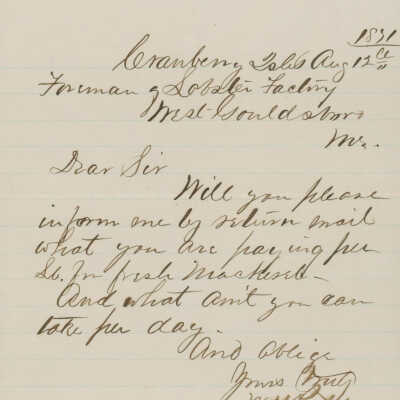 1871
Cranberry Isles Aug 12th
Foreman of Lobster Factory
West Gouldsboro
Me.
Dear Sir
Will you please
inform me by return mail
what you are paying per
Lb. for fresh Mackerel-
And what amt you can
take per day.
And Oblige
Yours Truly